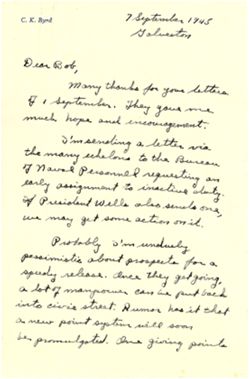 C. K. Byrd
7 September 1945
Galveston
Dear Bob,
Many thanks for your letters
of 1 September. They gave me
much hope and encouragement.
I'm sending a letter via
the many echelons to the Bureau
of Naval Personnel requesting an
early assignment to inactive duty.
If President Wells also sends one,
we may get some action on it.
Probably I'm unduly
pessimistic about prospects for a
speedy release. Once they get going,
a lot of manpower can be put back
into civic street. Rumor has it that
a new point system will soon
be promulgated. One giving points